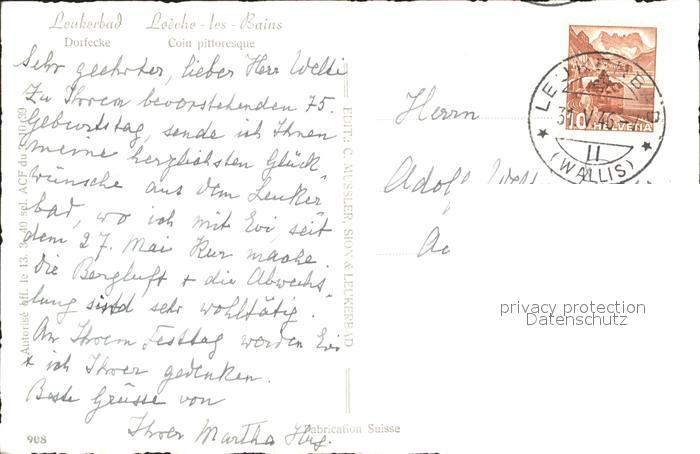 Leukerbad Loèche-les-Bains
Dorfecke Coin pittoresque
Sehr geehrter, lieber Herr Welti
Zu Ihrem bevorstehenden 75.
Geburtstag, sende ich Ihnen
meine herzlichsten Glück-
wünsche aus dem Leuker
bad, wo ich mit Evi, seit
dem 27. Mai Kur mache
Die Bergluft + die Abwechs-
lung sind sehr wohltätig.
An Ihrem Festtag werden Evi
+ ich Ihrer gedenken.
Beste Grüsse von
Ihrer Martha Hug.
908
Fabrication Suisse
Autorisé off. le 13. 3. 40 sel. ACF du 3. 10. 39
EDIT. C. MUSSLER, SION & LEUKERBAD
Herrn
Adolf
10 HELVETIA
31. V. 46
11
(WALLIS)
privacy protection
Datenschutz